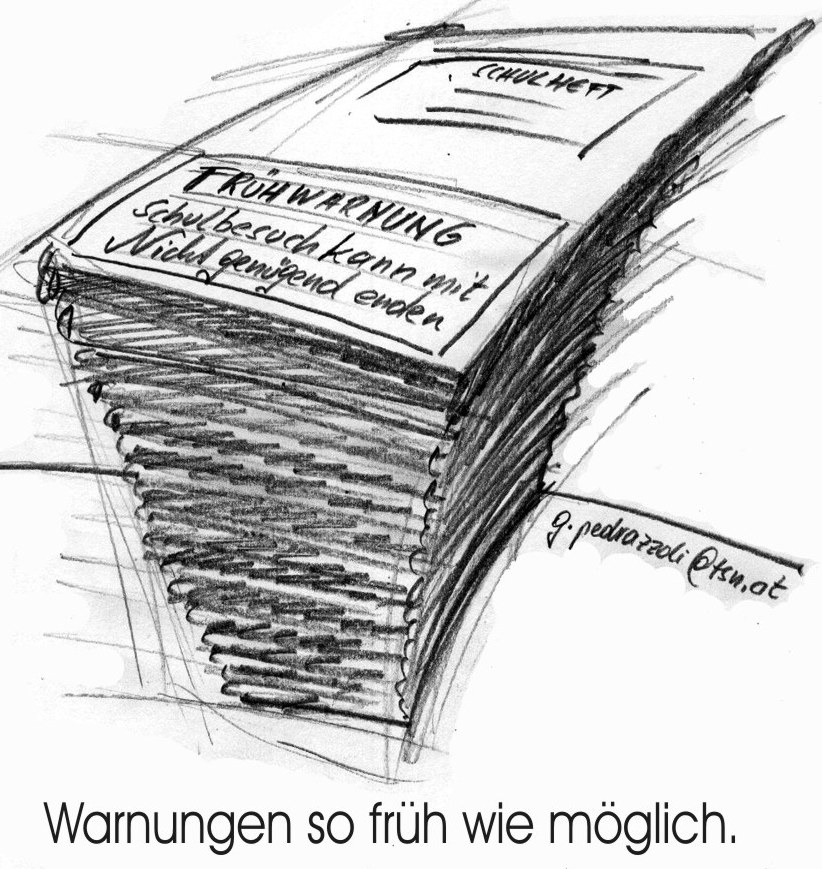 SCHULHEFT
FRÜHWARNUNG
Schulbesuch kann mit
Nicht genügend enden
g.pedrazzoli@tsn.at
Warnungen so früh wie möglich.